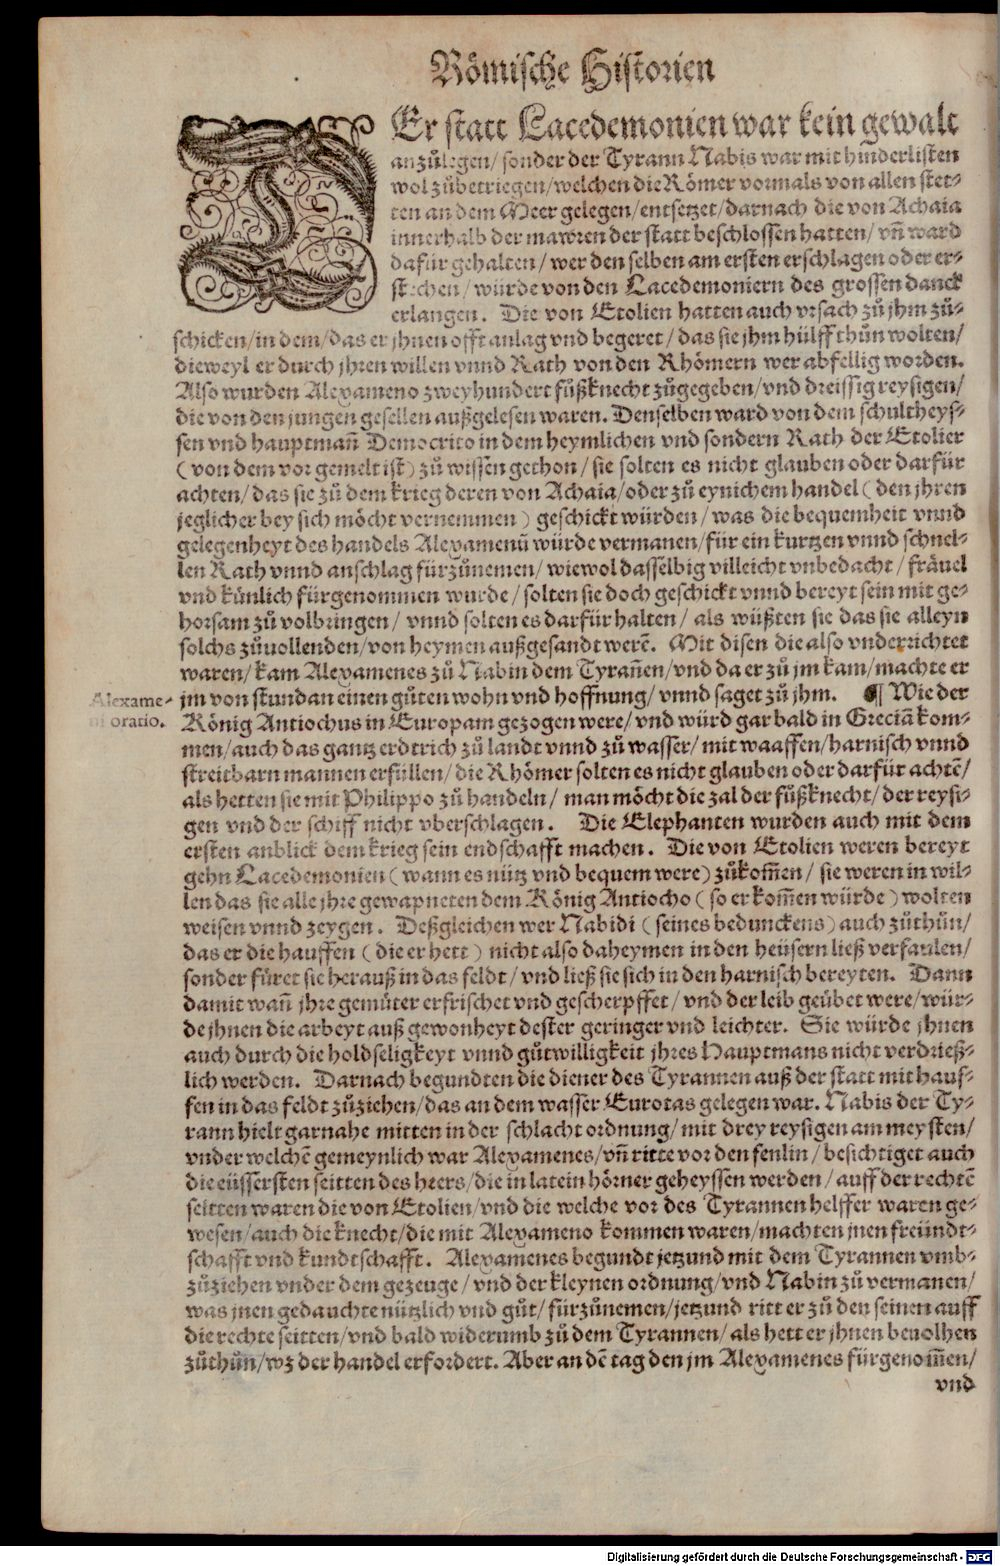 Römische Historien
DEr statt Lacedemonien war kein gewalt
anzůlegen/ sonder der Tyrann Nabis war mit hinderlisten
wol zůbetriegen/welchen die Römer vormals von allen stet-
ten an dem Meer gelegen/entsetzet/darnach die von Achaia
innerhalb der mawren der statt beschlossen hatten/ vñ ward
dafür gehalten/ wer den selben am ersten erschlagen oder er-
stechen/ würde von den Lacedemoniern des grossen danck
erlangen. Die von Etolien hatten auch vrsach zů jhm zů-
schicken/in dem/das er jhnen offt anlag vnd begeret/ das sie jhm hülff thůn wolten/
dieweyl er durch jhren willen vnnd Rath von den Rhömern wer abfellig worden.
Also wurden Alexameno zweyhundert fůßknecht zůgegeben/vnd dreissig reysigen/
die von den jungen gesellen außgelesen waren. Denselben ward von dem schultheys-
sen vnd hauptmañ Democrito in dem heymlichen vnd sondern Rath der Etolier
(von dem vor gemelt ist) zů wissen gethon/ sie solten es nicht glauben oder darfür
achten/ das sie zů dem krieg deren von Achaia/oder zů eynichem handel (den jhren
jeglicher bey sich möcht vernemmen) geschickt würden/ was die bequemheit vnnd
gelegenheyt des handels Alexamenū würde vermanen/für ein kurtzen vnnd schnel-
len Rath vnnd anschlag fürzůnemen/ wiewol dasselbig villeicht vnbedacht/ fräuel
vnd künlich fürgenommen wurde/ solten sie doch geschickt vnnd bereyt sein mit ge-
horsam zů volbringen/ vnnd solten es darfür halten/ als wüßten sie das sie alleyn
solchs zůuollenden/von heymen außgesandt werē. Mit disen die also vnderrichtet
waren/ kam Alexamenes zů Nabin dem Tyrañen/vnd da er zů jm kam/machte er
Alexame-
ni oratio.
jm von stund an einen gůten wohn vnd hoffnung/ vnnd saget zů jhm. ¶ Wie der
König Antiochus in Europam gezogen were/ vnd würd gar bald in Greciā kom-
men/auch das gantz erdtrich zů landt vnnd zů wasser/ mit waaffen/harnisch vnnd
streitbarn mannen erfüllen/ die Rhömer solten es nicht glauben oder darfür achtē/
als hetten sie mit Philippo zů handeln/ man möcht die zal der fůßknecht/ der reysi-
gen vnd der schiff nicht vberschlagen. Die Elephanten wurden auch mit dem
ersten anblick dem krieg sein endschafft machen. Die von Etolien weren bereyt
gehn Lacedemonien (wann es nütz vnd bequem were) zůkom̃en/ sie weren in wil-
len das sie alle jhre gewapneten dem König Antiocho (so er kom̃en würde) wolten
weisen vnnd zeygen. Deßgleichen wer Nabidi (seines bedunckens) auch zůthůn/
das er die hauffen (die er hett) nicht also daheymen in den heüsern ließ verfaulen/
sonder füret sie herauß in das feldt/ vnd ließ sie sich in den harnisch bereyten. Dann
damit wañ jhre gemüter erfrischet vnd gescherpffet/ vnd der leib geübet were/ wür-
de jhnen die arbeyt auß gewonheyt dester geringer vnd leichter. Sie würde jhnen
auch durch die holdseligkeyt vnnd gůtwilligkeit jhres Hauptmans nicht verdrieß-
lich werden. Darnach begundten die diener des Tyrannen auß der statt mit hauf-
fen in das feldt zůziehen/das an dem wasser Eurotas gelegen war. Nabis der Ty-
rann hielt garnahe mitten in der schlachtordnung/ mit drey reysigen am meysten/
vnder welchē gemeynlich war Alexamenes/vñ ritte vor den fenlin/ besichtiget auch
die eüssersten seitten des heers/die in latein hörner geheyssen werden/ auff der rechtē
seitten waren die von Etolien/vnd die welche vor des Tyrannen helffer waren ge-
wesen/auch die knecht/die mit Alexameno kommen waren/machten jnen freündt-
schafft vnd kundtschafft. Alexamenes begundt jetzund mit dem Tyrannen vmb-
zůziehen vnder dem gezeuge/ vnd der kleynen ordnung/vnd Nabin zů vermanen/
was jnen gedauchte nützlich vnd gůt/ fürzůnemen/jetzund ritt er zů den seinen auff
die rechte seitten/vnd bald widerumb zů dem Tyrannen/ als hett er jhnen beuolhen
zůthůn/wz der handel erfordert. Aber an dē tag den jm Alexamenes fürgenom̃en/
vnd
Digitalisierung gefördert durch die Deutsche Forschungsgemeinschaft - DFG